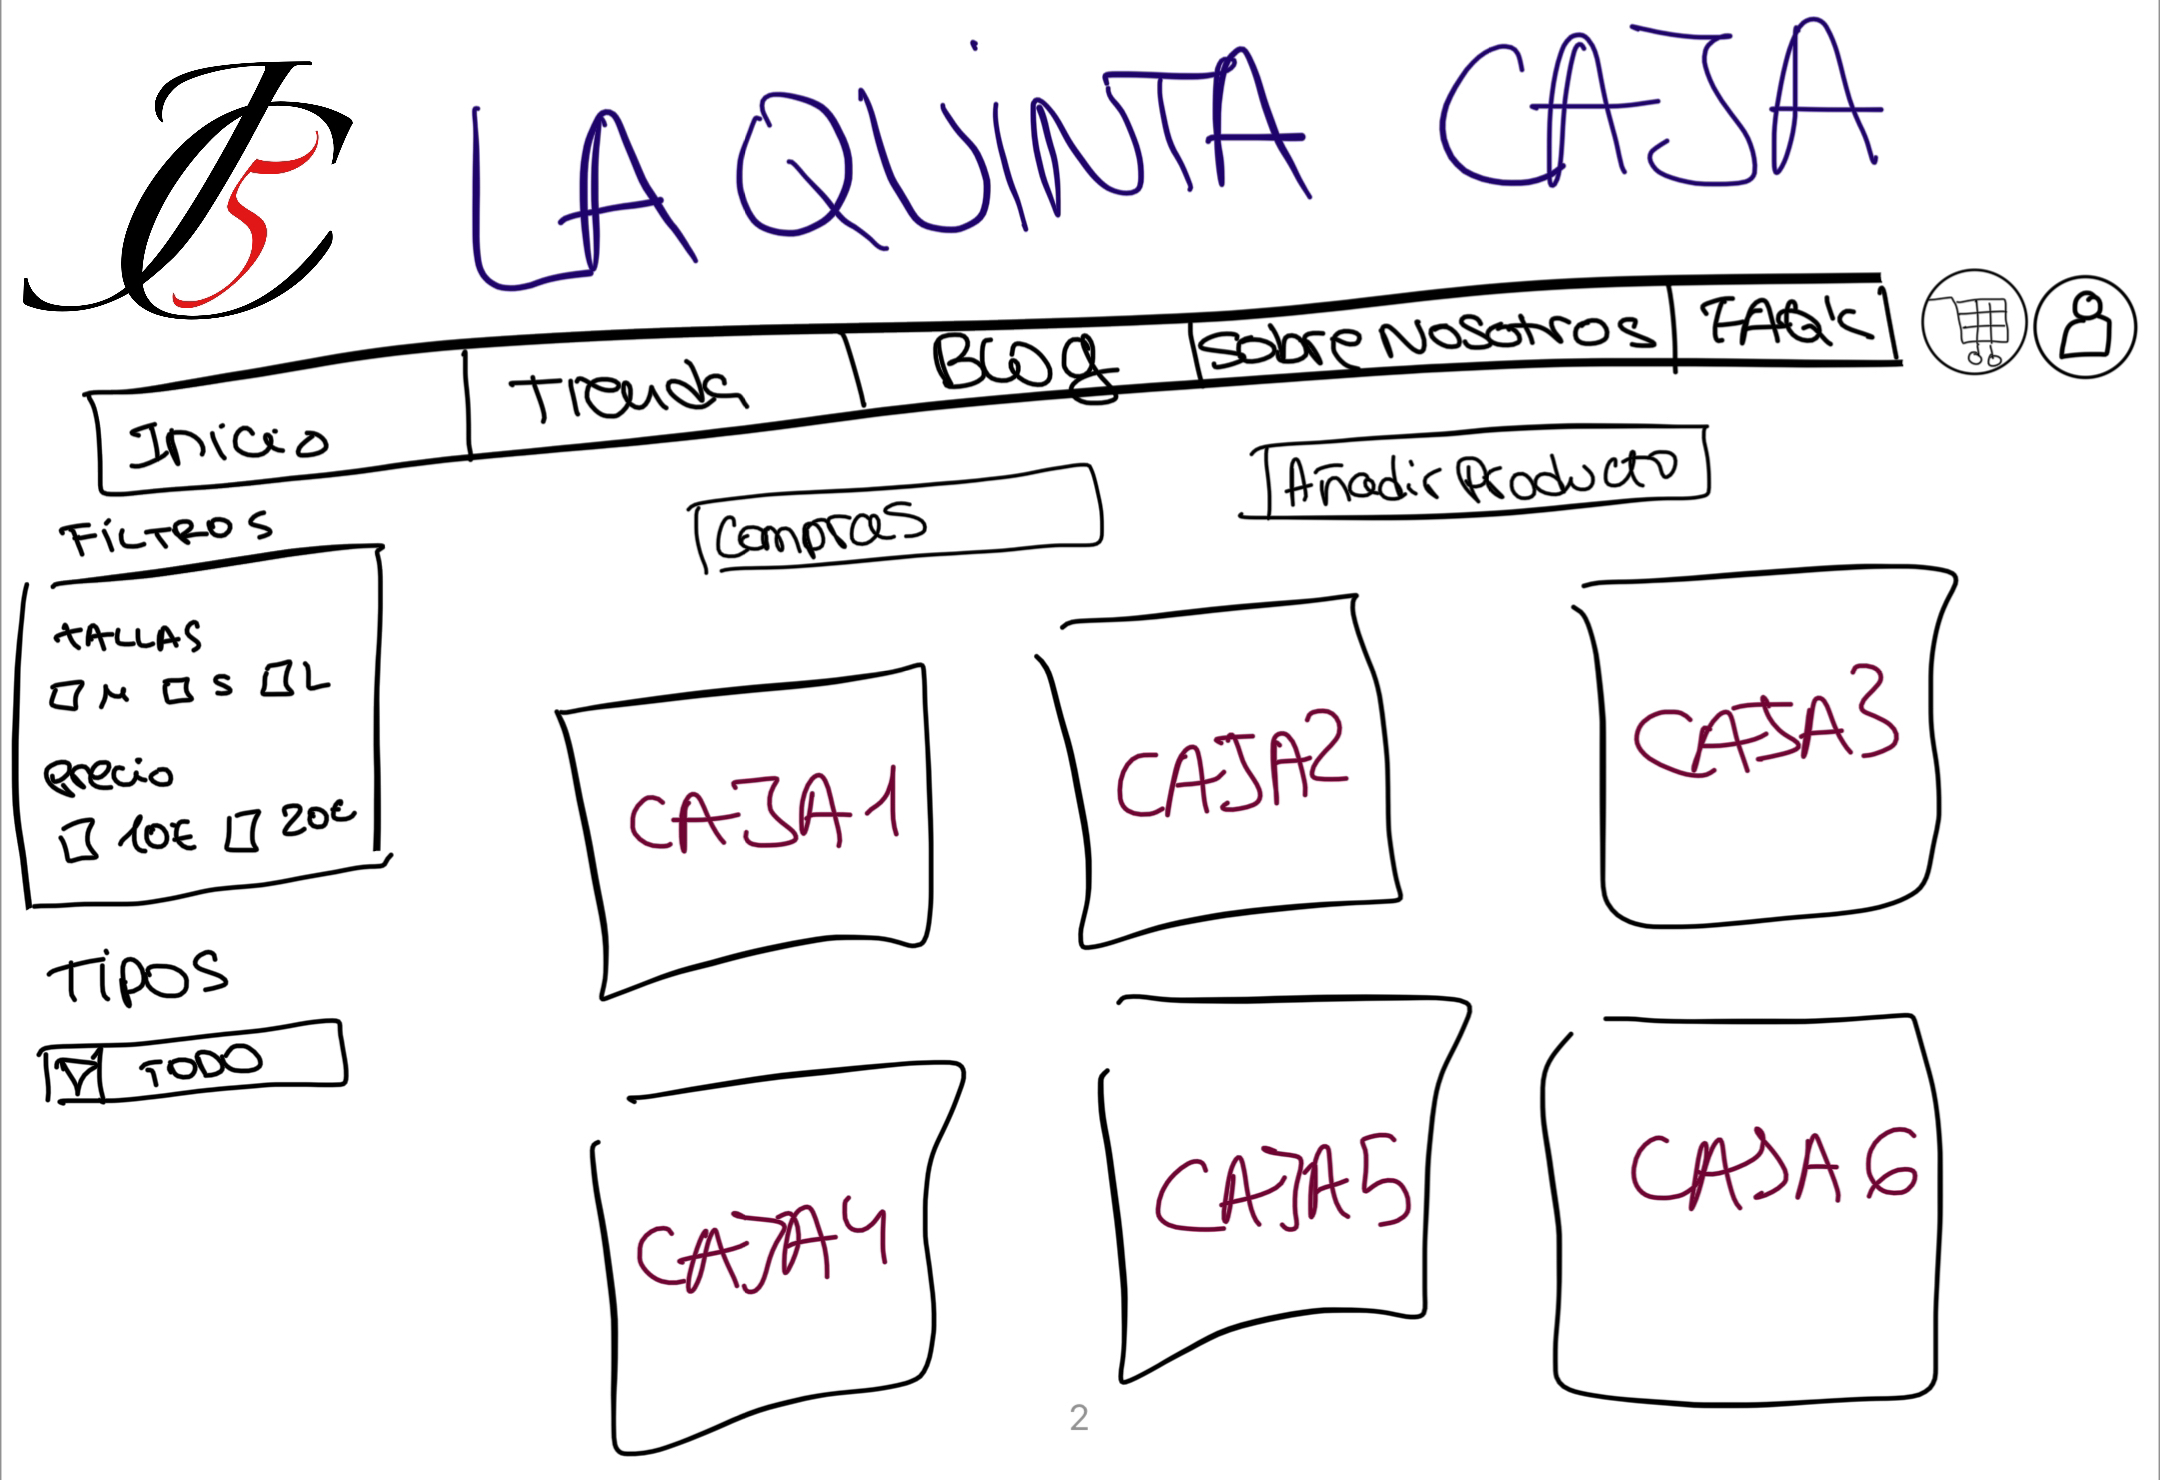 LA QUINTA CAJA
Inicio Tienda Blog Sobre Nosotros FAQ's
Compras Añadir Producto
FILTROS
TALLAS
M S L
Precio
10€ 20€
TIPOS
TODO
CAJA 1 CAJA 2 CAJA 3
CAJA 4 CAJA 5 CAJA 6
2